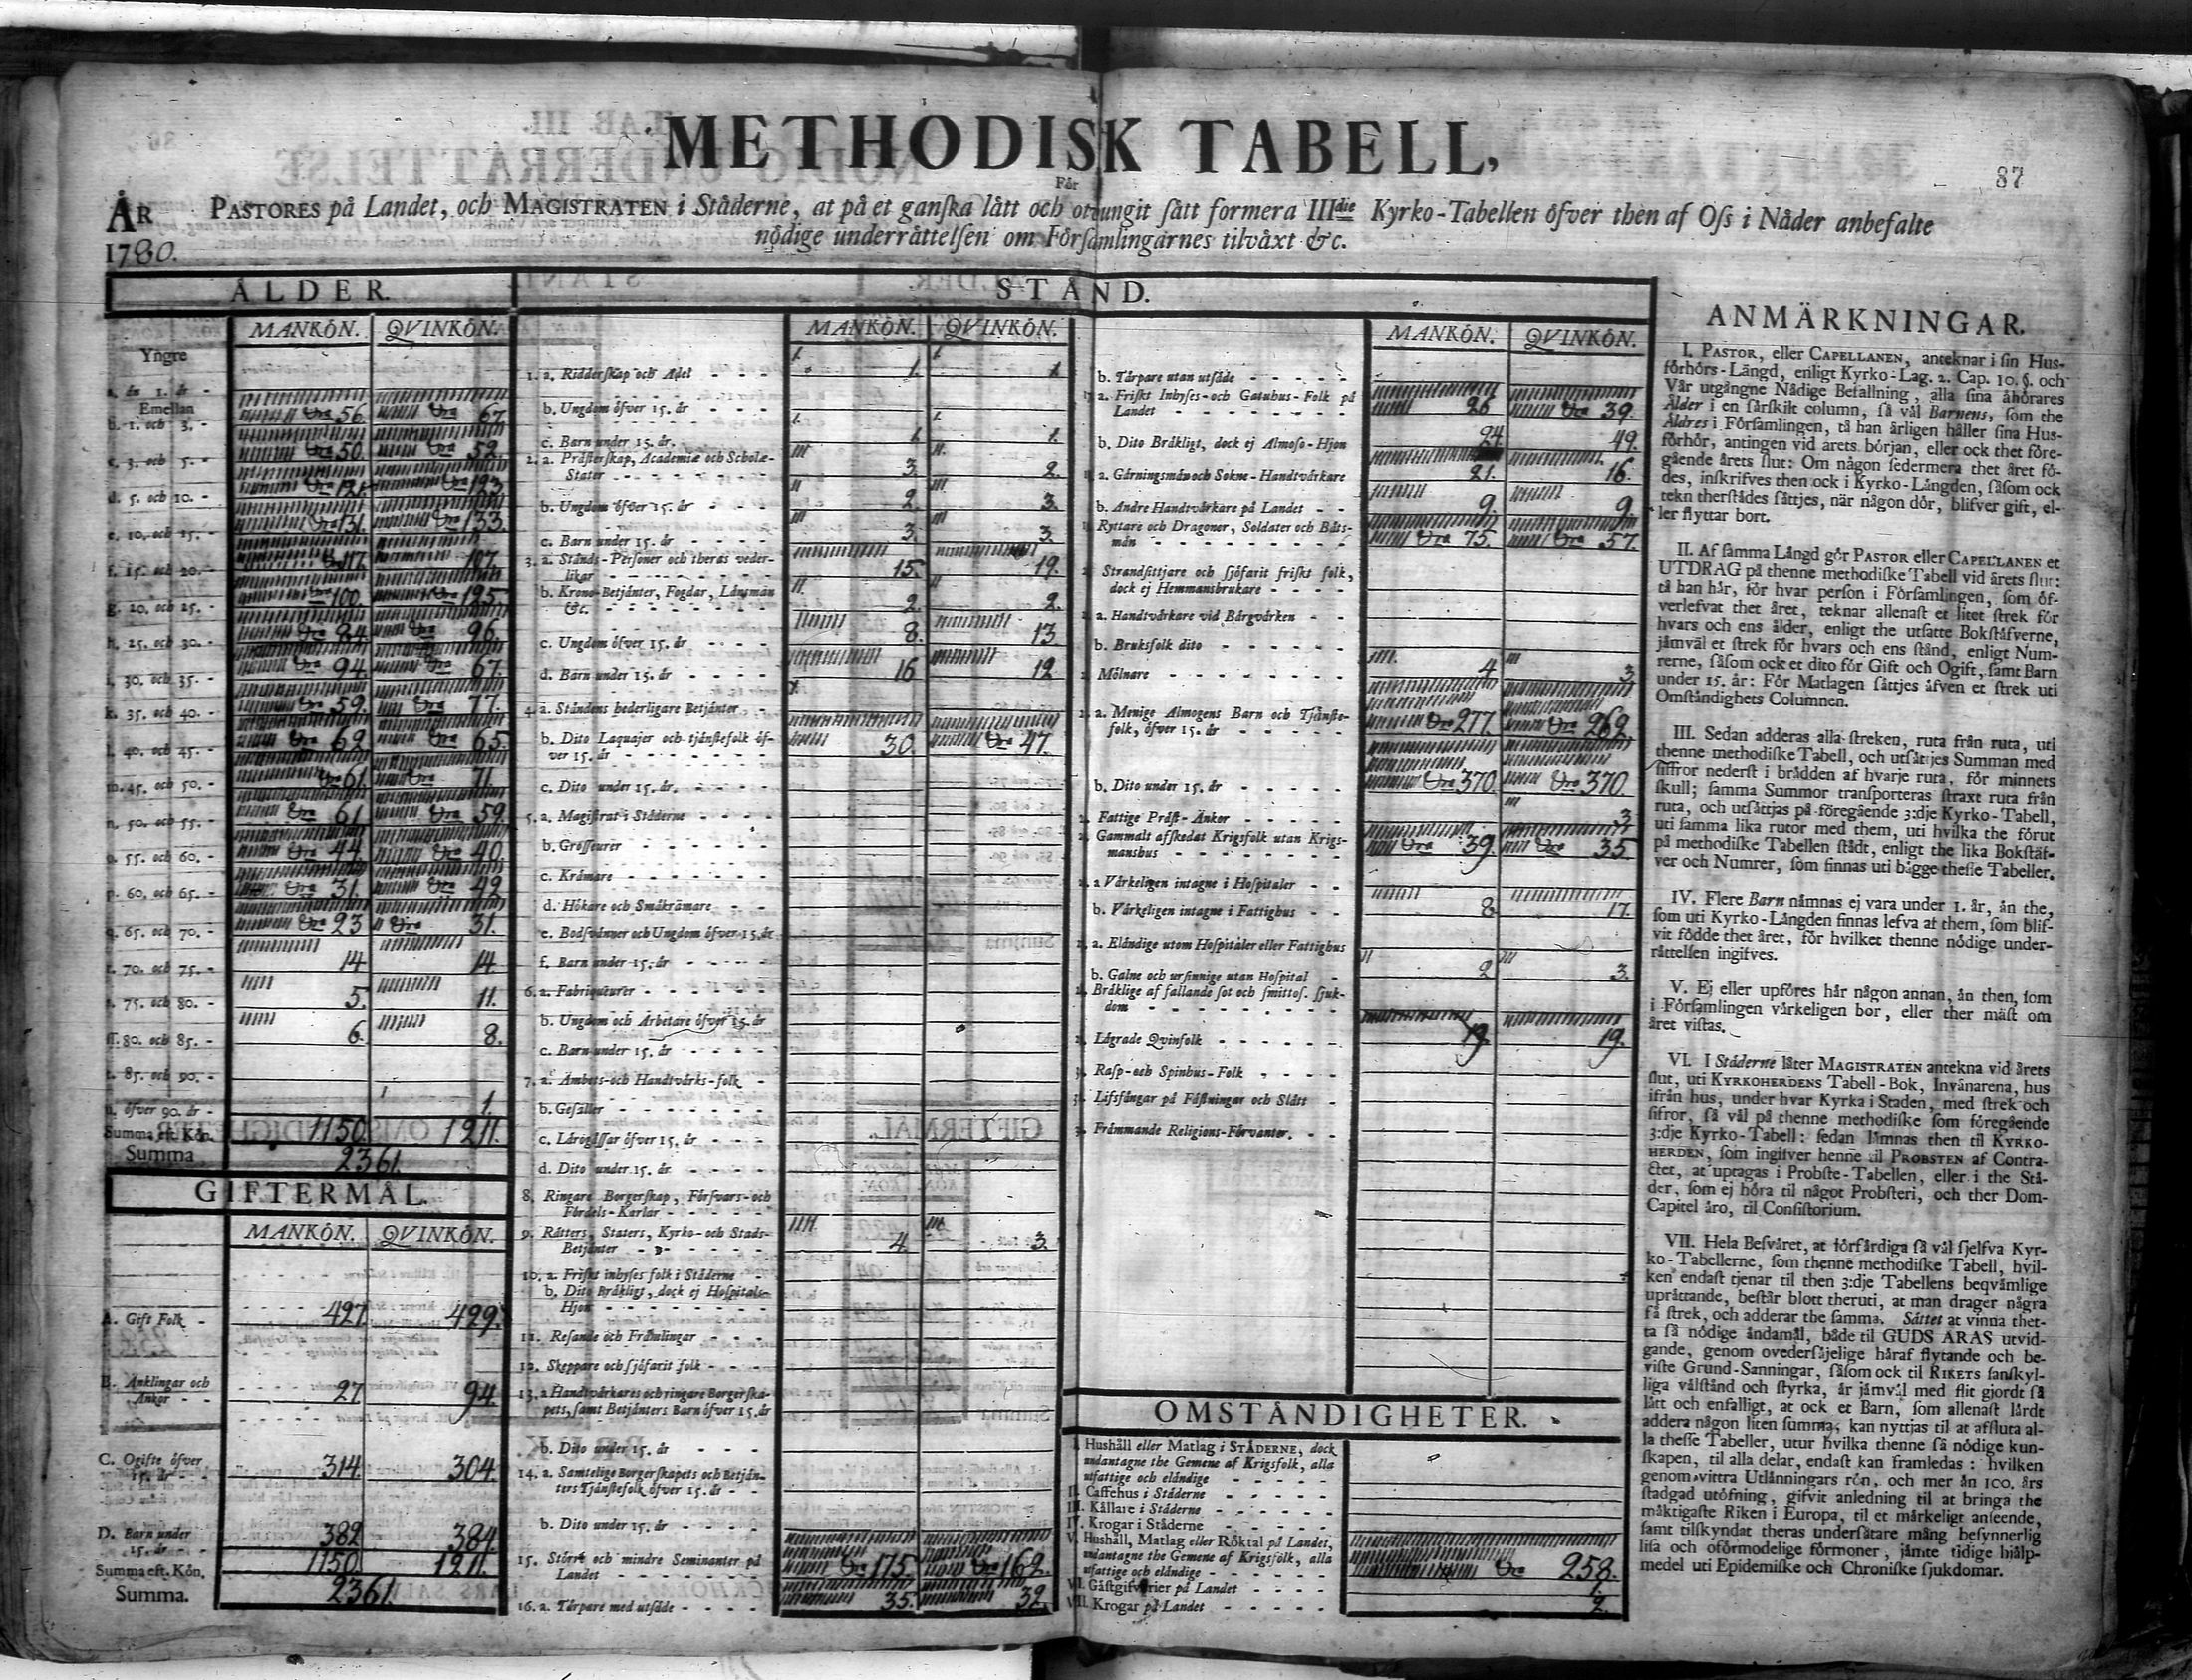 87
METHODISK TABELL,
För
ÅR PASTORES på Landet, och MAGISTRATEN i Städerne, at på et ganska lätt och otvungit sätt formera IIIdie Kyrko-Tabellen öfver then af Oss i Nåder anbefalte
1780. nödige underrättelsen om Församlingarnes tilväxt &c.
ÅLDER.
MANKÖN. QVINKÖN.
Yngre
a. än 1. år - 56. 67.
Emellan
b. 1. och 3. - 50. 52.
c. 3. och 5. - 121. 123.
d. 5. och 10. - 131. 133.
e. 10. och 15. - 117. 107.
f. 15. och 20. - 100. 125.
g. 20. och 25. - 84. 96.
h. 25. och 30. - 94. 67.
i. 30. och 35. - 59. 77.
k. 35. och 40. - 69. 65.
l. 40. och 45. - 61. 71.
m. 45. och 50. - 61. 59.
n. 50. och 55. - 44. 40.
o. 55. och 60. - 31. 49.
p. 60. och 65. - 23 31.
q. 65. och 70. - 14 14.
r. 70. och 75. - 5. 11.
s. 75. och 80. - 6. 8.
ss. 80. och 85. -
t. 85. och 90. - 1.
u. öfver 90. år -
Summa eft. Kön. 1150. 1211.
Summa 2361.
GIFTERMÅL.
MANKÖN. QVINKÖN.
A. Gift Folk - 427. 429.
B. Änklingar och
Änkor - - 27. 94.
C. Ogifte öfver
15. år - - 314. 304.
D. Barn under
15. år - - 382 384.
Summa eft. Kön. 1150. 1211.
Summa. 2361.
STÅND.
MANKÖN. QVINKÖN.
1. a. Ridderskap och Adel - - - 1. 1.
b. Ungdom öfver 15. år - - - -
c. Barn under 15. år. - - - - 1. 1.
2. a. Prästerskap, Academiæ och Scholæ-
Stater - - - - - - - 3. 2.
b. Ungdom öfver 15. år - - - - 2. 3.
c. Barn under 15. år - - - - 3. 3.
3. a. Stånds-Personer och theras veder-
likar - - - - - - - 15. 19.
b. Krono-Betjänter, Fogdar, Länsmän
&c. - - - - - - - 2. 2.
c. Ungdom öfver 15. år - - - - 8. 13
d. Barn under 15. år - - - - 16 12
4. a. Ståndens hederligare Betjänter -
b. Dito Laquajer och tjänstefolk öf-
ver 15. år - - - - - - 30. 47.
c. Dito under 15. år. - - - -
5. a. Magistrat i Städerne - - - -
b. Grosseurer - - - - -
c. Krämare - - - - - -
d. Hökare och Småkrämare - -
e. Bodsvänner och Ungdom öfver 15. år
f. Barn under 15. år - - - -
6. a. Fabriqueurer - - - - -
b. Ungdom och Arbetare öfver 15. år
c. Barn under 15. år - - - -
7. a. Ämbets- och Handtvärks-folk -
b. Gesäller - - - - - -
c. Lärogåssar öfver 15. år - - -
d. Dito under 15. år - - - -
8. Ringare Borgerskap, Försvars- och
Fördels-Karlar - - - - -
9. Rätters, Staters, Kyrko- och Stads-
Betjänter - - - - - 4. 3.
10. a. Friskt inhyses folk i Städerne -
b. Dito Bräkligt, dock ej Hospitals-
Hjon - - - - - - -
11. Resande och Främlingar - - -
12. Skeppare och sjöfarit folk - - -
13. a Handtvärkares och ringare Borgerska-
pets, samt Betjänters Barn öfver 15. år
b. Dito under 15. år - - -
14. a. Samtelige Borgerskapets och Betjän-
ters Tjänstefolk öfver 15. år - -
b. Dito under 15. år - - - -
15. Större och mindre Seminanter på
Landet - - - - - - 175. 162.
16. a. Torpare med utsäde - - - - 35. 32.
MANKÖN. QVINKÖN.
b. Torpare utan utsäde - - - - -
a. Friskt Inhyses- och Gatuhus-Folk på
Landet - - - - - - - 26 39.
b. Dito Bräkligt, dock ej Almoso-Hjon 24. 49.
a. Gärningsmän och Sokne-Handtvärkare 21. 16.
b. Andre Handtvärkare på Landet - - 9. 9.
Ryttare och Dragoner, Soldater och Båts-
män - - - - - - - 75. 57.
Strandsittjare och sjöfarit friskt folk,
dock ej Hemmansbrukare - - - -
a. Handtvärkare vid Bärgvärken - -
b. Bruksfolk dito - - - - - -
Mölnare - - - - - - - 4 3.
a. Menige Almogens Barn och Tjänste-
folk, öfver 15. år - - - - - 277. 262.
b. Dito under 15. år - - - - - 370. 370.
Fattige Präst-Änkor - - - - 3.
Gammalt afskedat Krigsfolk utan Krigs-
manshus - - - - - - - 39. 35.
a Värkeligen intagne i Hospitaler - -
b. Värkeligen intagne i Fattighus - - 8. 17.
a. Eländige utom Hospitaler eller Fattighus
b. Galne och ursinnige utan Hospital - 2 3.
Bräklige af fallande sot och smittos. sjuk-
dom - - - - - - - -
Lägrade Qvinfolk - - - - - - 19. 19.
Rasp- och Spinhus-Folk - - - -
Lifsfångar på Fästningar och Slått -
Främmande Religions-Förvanter. - -
OMSTÄNDIGHETER.
I. Hushåll eller Matlag i STÄDERNE, dock
undantagne the Gemene af Krigsfolk, alla
utfattige och eländige - - - - -
II. Caffehus i Städerne - - - - -
III. Källare i Städerne - - - - -
IV. Krogar i Städerne - - - - -
V. Hushåll, Matlag eller Röktal på Landet,
undantagne the Gemene af Krigsfolk, alla
utfattige och eländige - - - - - 258.
VI. Gästgifverier på Landet - - - - 1.
VII. Krogar på Landet - - - - - 2.
ANMÄRKNINGAR.
I. PASTOR, eller CAPELLANEN, anteknar i sin Hus-
förhörs-Längd, enligt Kyrko-Lag. 2. Cap. 10. §. och
Vår utgångne Nådige Befallning, alla sina åhörares
Ålder i en särskilt column, så väl Barnens, som the
Äldres i Församlingen, tå han årligen håller sina Hus-
förhör, antingen vid årets början, eller ock thet före-
gående årets slut: Om någon sedermera thet året fö-
des, inskrifves then ock i Kyrko-Längden, såsom ock
tekn therstädes sättjes, när någon dör, blifver gift, el-
ler flyttar bort.
II. Af samma Längd gör PASTOR eller CAPELLANEN et
UTDRAG på thenne methodiske Tabell vid årets slut:
tå han här, för hvar person i Församlingen, som öf-
verlefvat thet året, teknar allenast et litet strek för
hvars och ens ålder, enligt the utsatte Bokstäfverne,
jämväl et strek för hvars och ens stånd, enligt Num-
rerne, såsom ock et dito för Gift och Ogift, samt Barn
under 15. år: För Matlagen sättjes äfven et strek uti
Omständighets Columnen.
III. Sedan adderas alla streken, ruta från ruta, uti
thenne methodiske Tabell, och utsättjes Summan med
siffror nederst i brädden af hvarje ruta, för minnets
skull; samma Summor transporteras straxt ruta från
ruta, och utsättjas på föregående 3:dje Kyrko-Tabell,
uti samma lika rutor med them, uti hvilka the förut
på methodiske Tabellen stådt, enligt the lika Bokstäf-
ver och Numrer, som finnas uti bägge thesse Tabeller.
IV. Flere Barn nämnas ej vara under 1. år, än the,
som uti Kyrko-Längden finnas lefva af them, som blif-
vit födde thet året, för hvilket thenne nödige under-
rättelsen ingifves.
V. Ej eller upföres här någon annan, än then, som
i Församlingen värkeligen bor, eller ther mäst om
året vistas.
VI. I Städerne låter MAGISTRATEN antekna vid årets
slut, uti KYRKOHERDENS Tabell-Bok, Invånarena, hus
ifrån hus, under hvar Kyrka i Staden, med strek och
sifror, så väl på thenne methodiske som föregående
3:dje Kyrko-Tabell: sedan lämnas then til KYRKO-
HERDEN, som ingifver henne til PROBSTEN af Contra-
ctet, at uptagas i Probste-Tabellen, eller i the Stä-
der, som ej höra til något Probsteri, och ther Dom-
Capitel äro, til Consistorium.
VII. Hela Besväret, at förfärdiga så väl sjelfva Kyr-
ko-Tabellerne, som thenne methodiske Tabell, hvil-
ken endast tjenar til then 3:dje Tabellens beqvämlige
uprättande, består blott theruti, at man drager några
få strek, och adderar the samma. Sättet at vinna thet-
ta så nödige ändamål, både til GUDS ÄRAS utvid-
gande, genom ovedersäjelige häraf flytande och be-
viste Grund-Sanningar, såsom ock til RIKETS sanskyl-
liga välstånd och styrka, är jämväl med flit gjordt så
lätt och enfalligt, at ock et Barn, som allenast lärdt
addera någon liten summa, kan nyttjas til at afsluta al-
la thesse Tabeller, utur hvilka thenne så nödige kun-
skapen, til alla delar, endast kan framledas: hvilken
genom vittra Utlänningars rön, och mer än 100. års
stadgad utöfning, gifvit anledning til at bringa the
mäktigaste Riken i Europa, til et märkeligt anseende,
samt tilskyndat theras undersåtare mång besynnerlig
lisa och oförmodelige förmoner, jämte tidige hjälp-
medel uti Epidemiske och Chroniske sjukdomar.